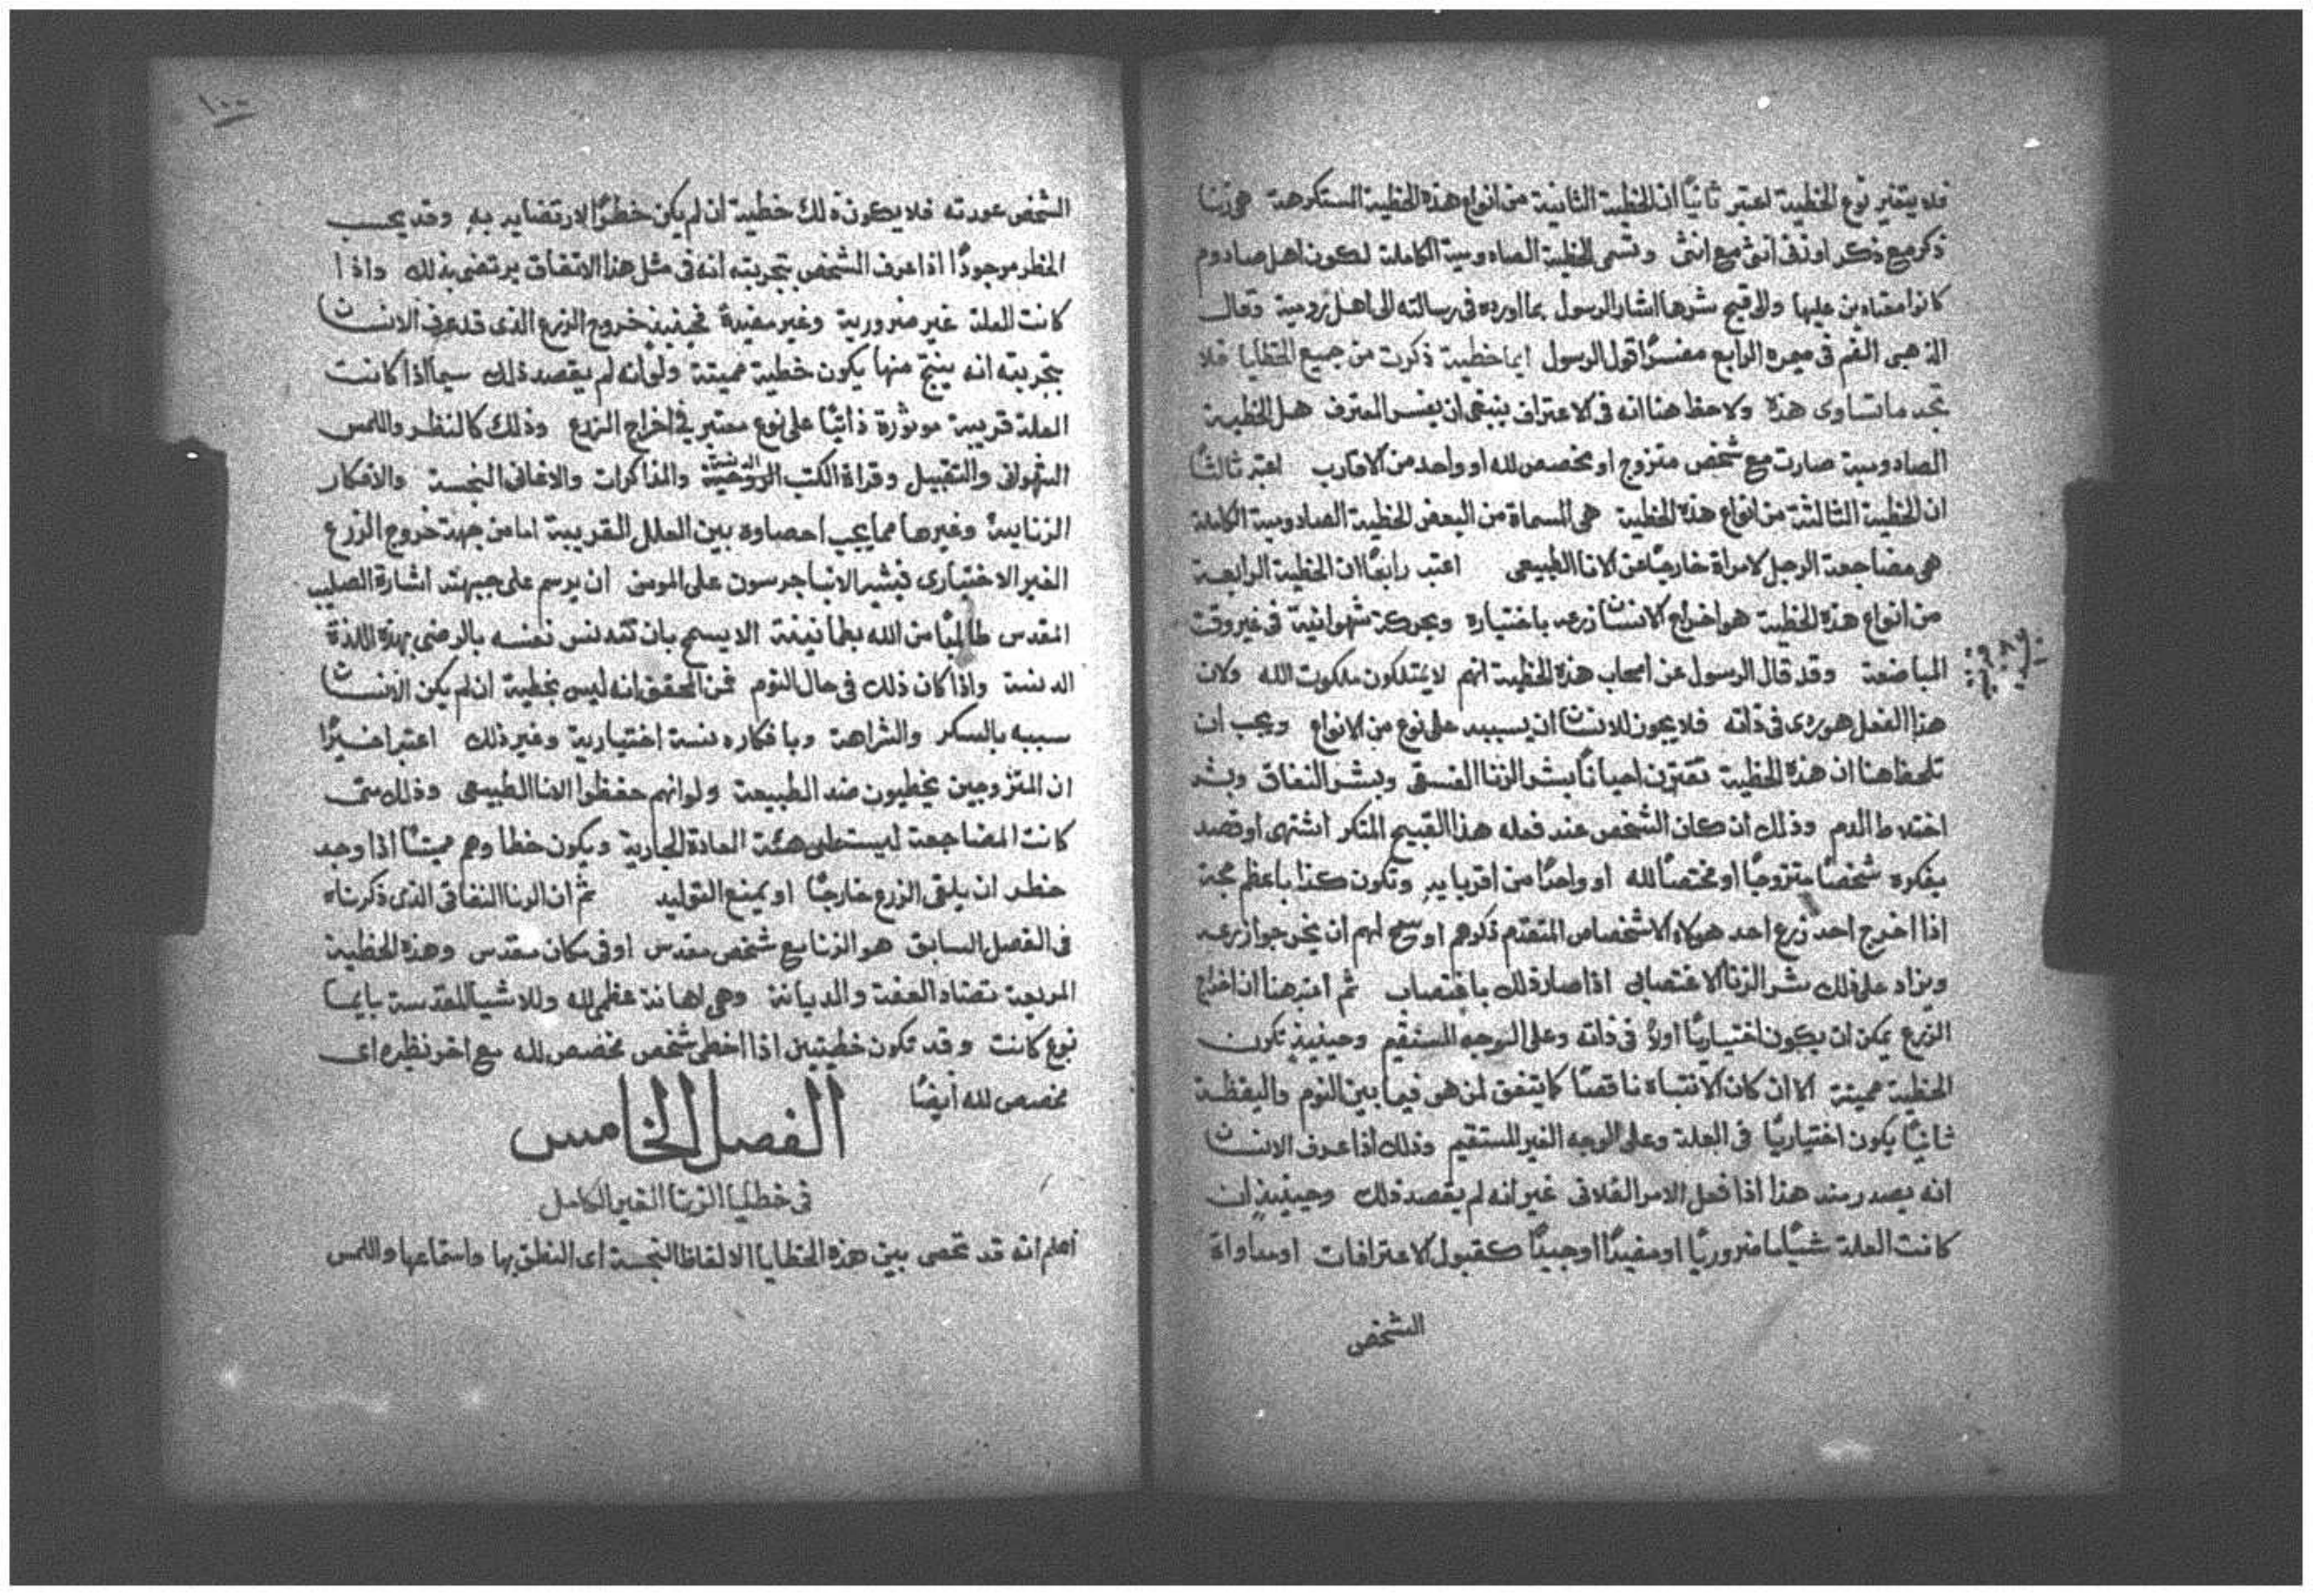 فلا يتغير نوع الخطية اعتبر ثانيًا ان الخطية الثانية من انواع هذه الخطية المستكرهة هي زنا
ذكر مع ذكر او انثى مع انثى وتسمى الخطية الصادومية الكاملة لكون اهل صادوم
كانوا معتادين عليها والى قبح شرها اشار الرسول بما اورده في رسالته الى اهل رومية وقال
الذهبي الفم في ميمره الرابع مفسرًا قول الرسول ايما خطية ذكرت من جميع الخطايا فلا
تجد ما تساوى هذه ولاحظ هنا انه في الاعتراف ينبغي ان يفسر المعترف هل الخطية
الصادومية صارت مع شخص متزوج او مخصص لله او واحد من الاقارب اعتبر ثالثًا
ان الخطية الثالثة من انواع هذه الخطية هي المسماة من البعض الخطية الصادومية الكاملة
هي مضاجعة الرجل لامراة خارجًا عن الانا الطبيعي اعتبر رابعًا ان الخطية الرابعة
من انواع هذه الخطية هو اخراج الانسان زرعه باختياره وبحركة شهوانية في غير وقت
المباضعة وقد قال الرسول عن اصحاب هذه الخطية انهم لا يمتلكون ملكوت الله ولان
هذا الفعل هو ردى في ذاته فلا يجوز للانسان ان يسببه على نوع من الانواع ويجب ان
تلحظ هنا ان هذه الخطية تقترن احيانًا بشر الزنا الفسقى وبشر النفاق وبشر
اختلاط الدم وذلك ان كان الشخص عند فعله هذا القبيح المنكر اشتهى او قصد
بفكره شخصًا متزوجًا او مختصًا لله او واحدًا من اقربايه وتكون كذا باعظم حجة
اذا اخرج احد زرع احد هولاء الاشخاص المتقدم ذكرهم او سمح لهم ان يخرجوا زرعه
ويزاد على ذلك شر الزنا الاغتصابى اذا صار ذلك باغتصاب ثم اعتبر هنا ان اخراج
الزرع يمكن ان يكون اختياريًا اولًا في ذاته وعلى الوجه المستقيم وحينيذٍ تكون
الخطية مميتة الا ان كان الانتباه ناقصًا كما يتفق لمن هو فيما بين النوم واليقظة
ثانيًا يكون اختياريًا في العلة وعلى الوجه الغير المستقيم وذلك اذا عرف الانسان
انه يصدر منه هذا اذا فعل الامر الفلاني غير انه لم يقصد ذلك وحينيذٍ ان
كانت العلة شيًا ما ضروريًا او مفيدًا او جيدًا كقبول الاعترافات او مداواة
الشخص
١٠٠
الشخص عورته فلا يكون ذلك خطية ان لم يكن خطرًا لارتضايه به وقد يحسب
الخطر موجودًا اذا عرف الشخص بتجربته انه في مثل هذا الاتفاق يرتضى بذلك واذا
كانت العلة غير ضرورية وغير مفيدة فحينيذٍ خروج الزرع الذى قد عرف الانسان
بتجربته انه ينتج منها يكون خطية مميتة ولو انه لم يقصد ذلك سيما اذا كانت
العلة قريبة موثرة ذاتيًا على نوع معتبر في اخراج الزرع وذلك كالنظر واللمس
الشهوانى والتقبيل وقراة الكتب الدنسة والمذاكرات والاغاني النجسة والافكار
الزنايية وغيرها مما يجب احصاوه بين العلل القريبة اما من جهة خروج الزرع
الغير الاختيارى فيشير الانبا جرسون على المومن ان يرسم على جبهته اشارة الصليب
المقدس طالبًا من الله بطمانينة الا يسمح بان تتدنس نفسه بالرضى بهذه اللذة
الدنسة واذا كان ذلك في حال النوم فمن المحقق انه ليس بخطية ان لم يكن الانسان
سببه بالسكر والشراهة وبافكار دنسة اختيارية وغير ذلك اعتبر اخيرًا
ان المتزوجين يخطيون ضد الطبيعة ولو انهم حفظوا الانا الطبيعي وذلك متى
كانت المضاجعة ليست على هيئة العادة الجارية ويكون خطاوهم مميتًا اذا وجد
خطر ان يلقى الزرع خارجًا او يمنع التوليد ثم ان الزنا النفاقي الذى ذكرناه
في الفصل السابق هو الزنا مع شخص مقدس او في مكان مقدس وهذه الخطية
المريعة تضاد العفة والديانة وهي اهانة عظمى لله وللاشيا المقدسة بايما
نوع كانت وقد تكون خطيتين اذا اخطى شخص مخصص لله مع اخر نظيره اى
مخصص لله أيضًا
الفصل الخامس
في خطايا الزنا الغير الكامل
اعلم انه قد تحصى بين هذه الخطايا الالفاظ النجسة اى النطق بها واستماعها واللمس